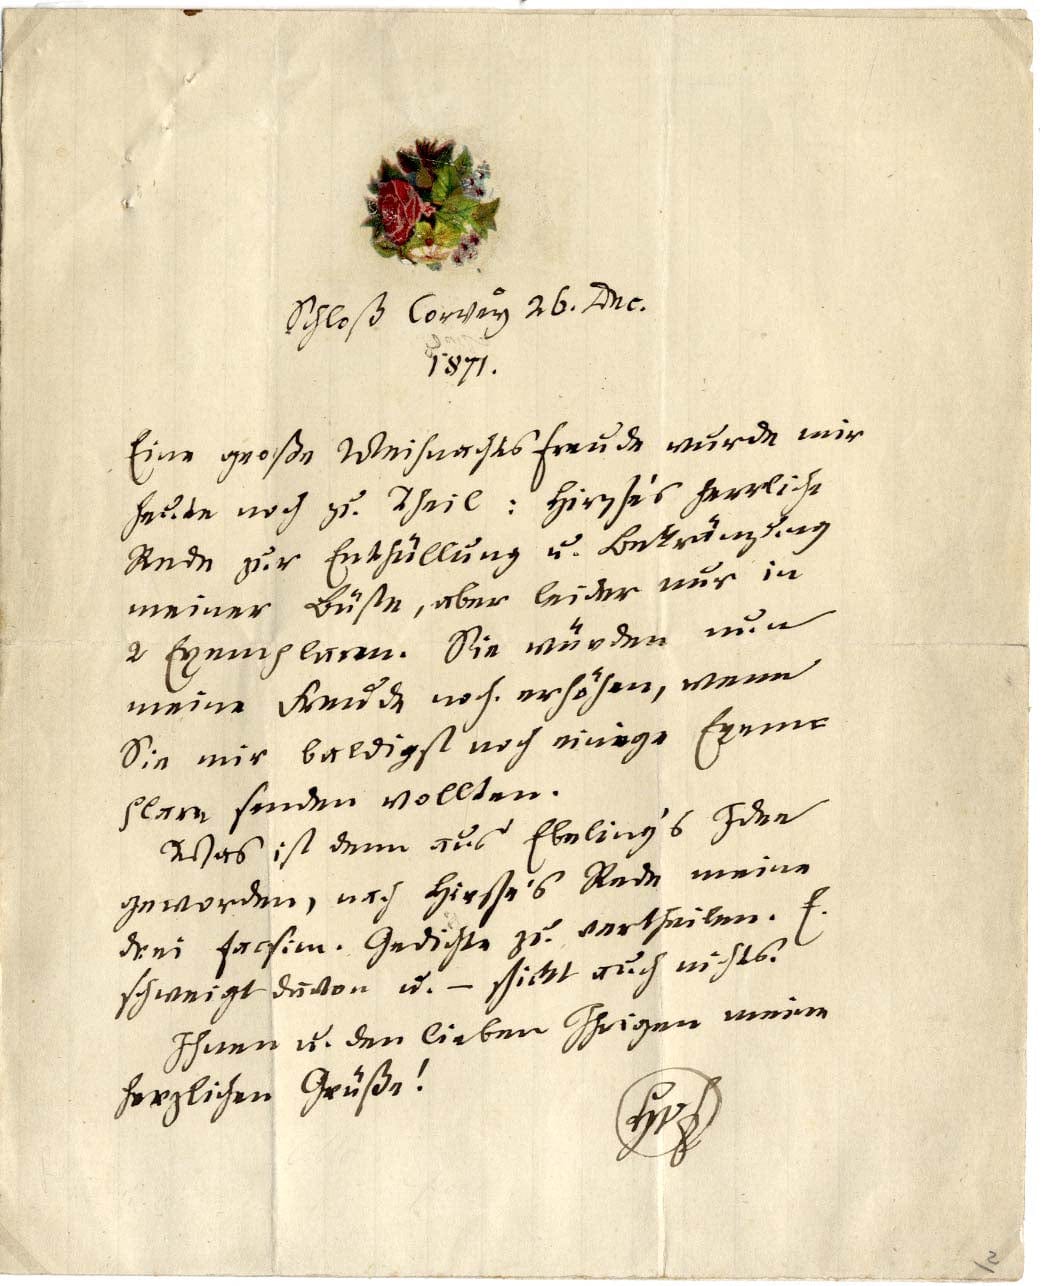 Schloß Corvey 26. Dec.
1871.
Eine große Weihnachtsfreude wurde mir
heute noch zu Theil: Hirsche's herrliche
Rede zur Enthüllung u. Bekränzung
meiner Büste, aber leider nur in
2 Exemplaren. Sie würden nun
meine Freude noch erhöhen, wenn
Sie mir baldigst noch einige Exem-
plare senden wollten.
Was ist denn aus Ebeling's Idee
geworden, nach Hirsche's Rede meine
drei facsim. Gedichte zu vertheilen. E.
schweigt davon u. – schickt auch nichts.
Ihnen u. den lieben Ihrigen meine
herzlichen Grüße!
HvF
2